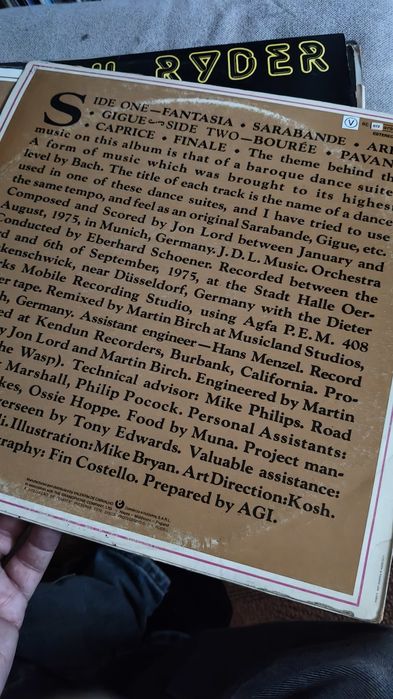 RYDER
SIDE ONE—FANTASIA • SARABANDE • ARI
• GIGUE SIDE TWO—BOURÉE • PAVAN
• CAPRICE • FINALE • The theme behind th
music on this album is that of a baroque dance suite
A form of music which was brought to its highes
level by Bach. The title of each track is the name of a dance
used in one of these dance suites, and I have tried to use
the same tempo, and feel as an original Sarabande, Gigue, etc.
Composed and Scored by Jon Lord between January and
August, 1975, in Munich, Germany. J.D.L. Music. Orchestra
Conducted by Eberhard Schoener. Recorded between the
rd and 6th of September, 1975, at the Stadt Halle Oer-
kenschwick, near Düsseldorf, Germany with the Dieter
rks Mobile Recording Studio, using Agfa P.E.M. 408
er tape. Remixed by Martin Birch at Musicland Studios,
h, Germany. Assistant engineer—Hans Menzel. Record
ed at Kendun Recorders, Burbank, California. Pro-
y Jon Lord and Martin Birch. Engineered by Martin
he Wasp). Technical advisor: Mike Philips. Road
Marshall, Philip Pocock. Personal Assistants:
kes, Ossie Hoppe. Food by Muna. Project man-
erseen by Tony Edwards. Valuable assistance:
i. Illustration: Mike Bryan. Art Direction: Kosh.
graphy: Fin Costello. Prepared by AGI.